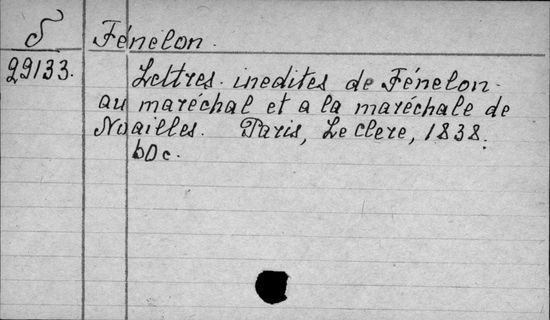 S Fénelon.
29133. Lettres inedites de Fénelon
au maréchal et a la maréchale de
Noailles. Paris, Le Clere, 1838.